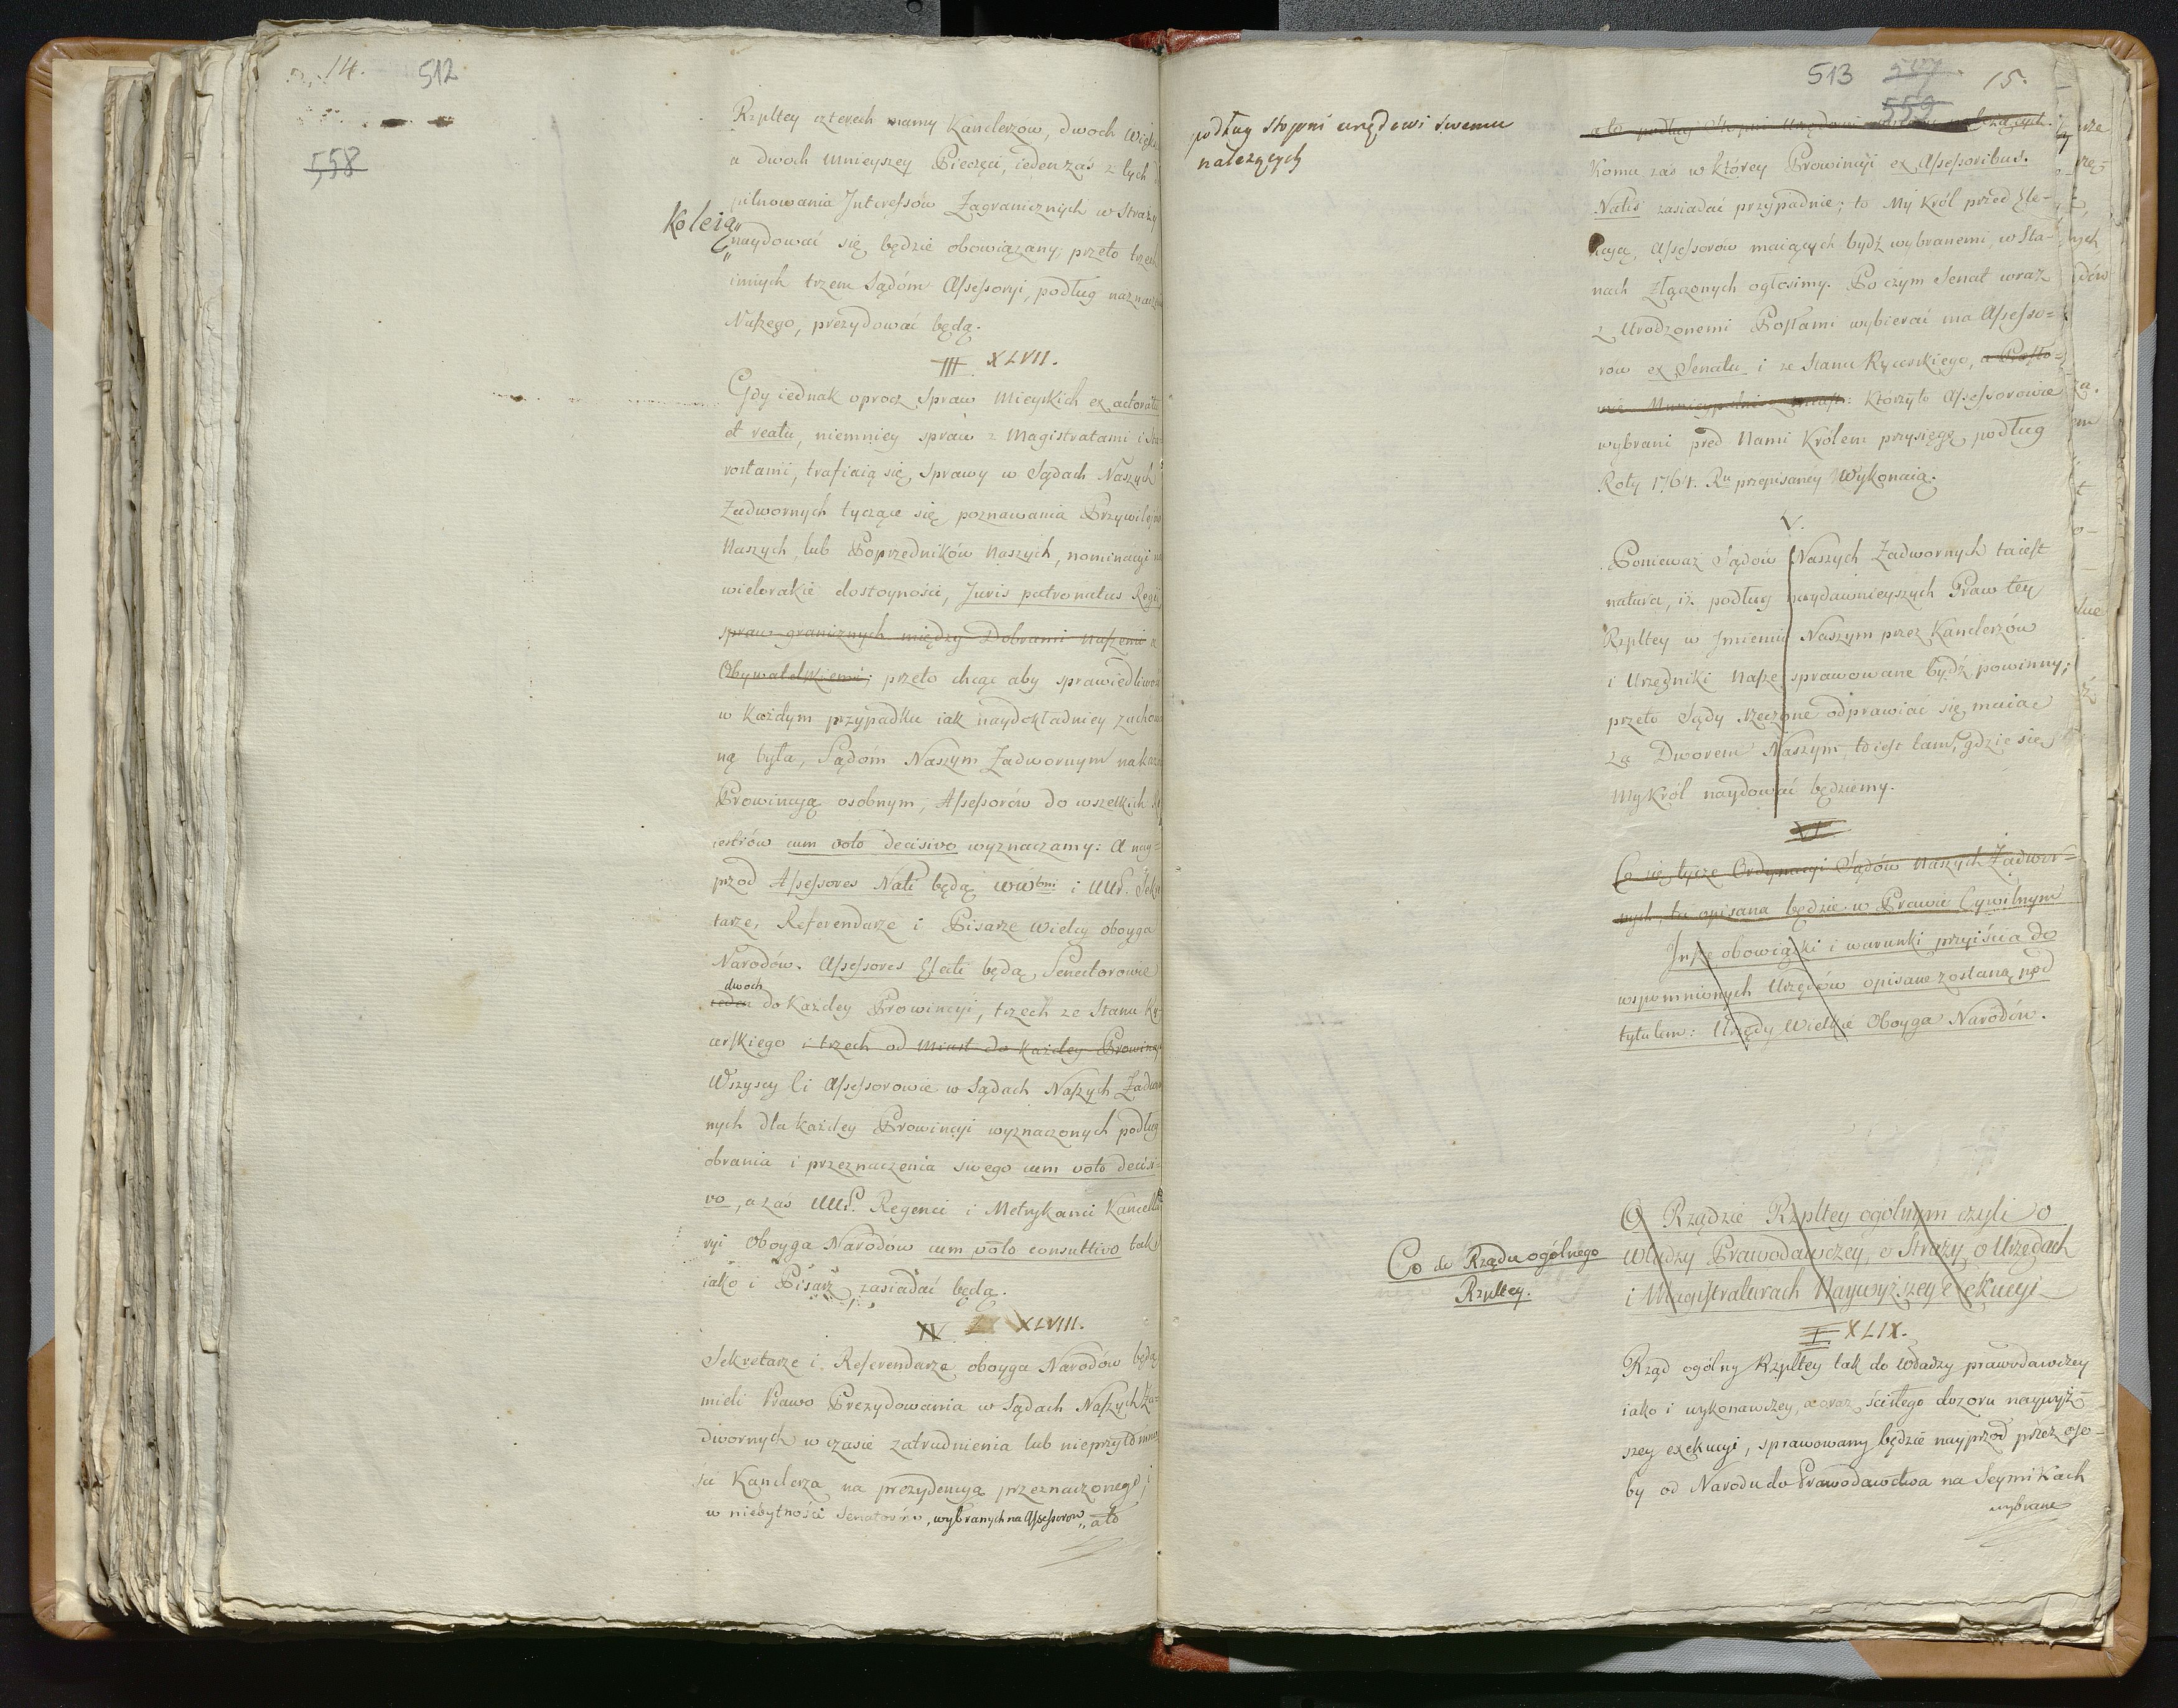 14. 512
558
Rzpltey czterech mamy Kanclerzow, dwoch Więk
a dwoch Mnieyszey Pieczęci, ieden zaś z tych
pilnowania Jnteressów Zagranicznych w Straży
Koleią
naydować się będzie obowiązany, przeto trzech
innych trzem Sądóm Assessoryi, podług naznacze
Naszego, prezydować będą.
III XLVII.
Gdy iednak oprocz Spraw Mieyskich ex actoratu
et reatu, niemniey spraw z Magistratami i Sta
rostami, trafiaią się, Sprawy w Sądach Naszych
Zadwornych tyczące się poznawania Przywilejów
Naszych, lub Poprzedników Naszych, nominacyi na
wielorakie dostoyności, Juris patronatus Regii,
spraw granicznych między Dobrami Naszemi a
Obywatelskiemi; przeto chcąc aby sprawiedliwość
w każdym przypadku iak naydokładniey zachowa
ną była, Sądóm Naszym Zadwornym na każdą
Prowincyą osobnym, Assessorów do wszelkich Re
iestrów cum voto decisivo wyznaczamy: A nay-
przod Assessores Nati będą WW bni i UUr. Sekre
tarze, Referendarze i Pisarze Wielcy oboyga
Narodów. Assessores Electi będą, Senatorowie
dwoch
ieden do każdey Prowincyi, trzech ze Stanu Ry-
cerskiego i trzech od Miast do każdey Prowincyi
Wszyscy Ci Assessorowie w Sądach Naszych Zadwor
nych dla każdey Prowincyi wyznaczonych podług
obrania i przeznaczenia swego cum voto decisi-
vo, a zaś UUr. Regenci i Metrykanci Kancella
ryi Oboyga Narodów cum voto consultivo tak
iako i Pisarz zasiadać będą.
IV XLVIII.
Sekretarze i Referendarze oboyga Narodów będą
mieli Prawo Prezydowania w Sądach Naszych Za-
dwornych w czasie zatrudnienia lub nieprzytomno
ści Kanclerza na prezydencyą przeznaczonego, i
w niebytności Senatorów, wybranych na Assessorow „ a to
513 507 15.
559
podług stopni urzędowi swemu
należących
a to podług Stopni Urzędowi swemu należących.
Komu zaś w którey Prowincyi ex Assessoribus
Natis zasiadać przypadnie; to My Król przed Ele-
kcyą, Assessorów maiących bydź wybranemi, w Sta-
nach Złączonych ogłosimy. Po czym Senat wraz
z Urodzonemi Posłami wybierać ma Assesso-
rów ex Senatu i ze Stanu Rycerskiego, a Posło-
wie Municypalni z miast: którzyto Assessorowie
wybrani przed Nami Królem przysięgę podług
Roty 1764. Ru przepisaney Wykonaią.
V.
Ponieważ Sądów Naszych Zadwornych ta iest
natura, iż podług naydawnieyszych Praw tey
Rzpltey w Jmieniu Naszym przez Kanclerzów
i Urzędniki Nasze sprawowane bydź powinny;
przeto Sądy rzeczone odprawiać się maią
za Dworem Naszym to iest tam, gdzie się
My Król naydować będziemy.
VI
Co się tycze Ordynacyi Sądów Naszych Zadwor-
nych, ta opisana będzie w Prawie Cywilnym
Jnsze obowiązki i warunki przyiścia do
wspomnionych Urzędów opisane zostaną pod
tytułem: Urzędy Wielkie Oboyga Narodów.
O Rządzie Rzpltey ogólnym czyli o
Władzy Prawodawczey, o Straży, o Urzędach
i Magistraturach Naywyższey Exekucyi
Co do Rządu ogólnego
Rzpltey.
I XLIX.
Rząd ogólny Rzpltey tak do Władzy prawodawczey
iako i wykonawczey, a oraz ścisłego dozoru naywyż-
szey exekucyi, sprawowany będzie nayprzod przez oso-
by od Narodu do Prawodawctwa na Seymikach
wybrane